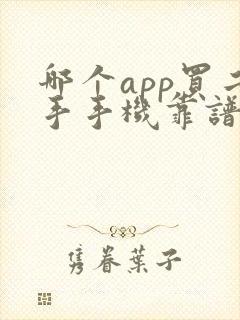 哪个app買二
手手機靠譜
隽眷葉子